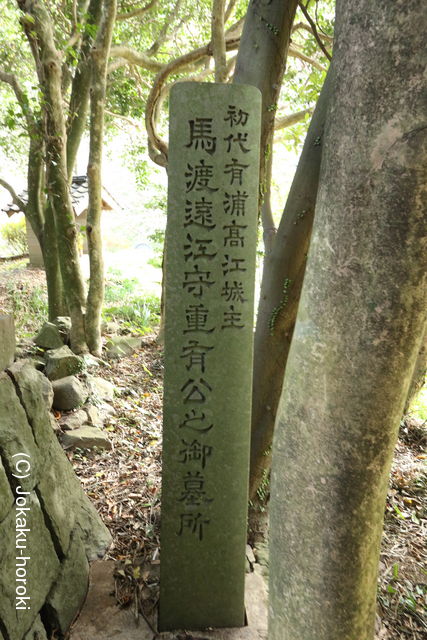 初代有浦高江城主
馬渡遠江守重有公之御墓所
(C) Jokaku-horoki